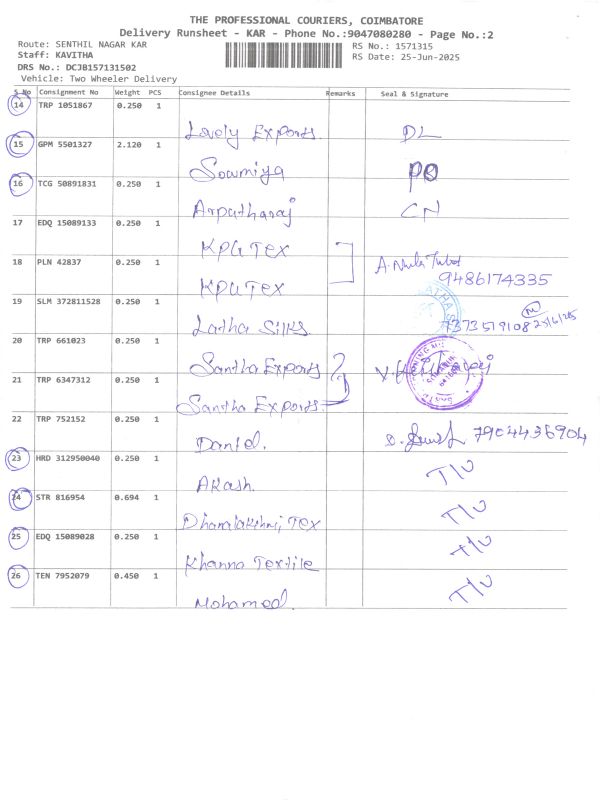 THE PROFESSIONAL COURIERS, COIMBATORE
Delivery Runsheet - KAR - Phone No.:9047080280 - Page No.:2
Route: SENTHIL NAGAR KAR RS No.: 1571315
Staff: KAVITHA RS Date: 25-Jun-2025
DRS No.: DCJB157131502
Vehicle: Two Wheeler Delivery
S No Consignment No Weight PCS Consignee Details Remarks Seal & Signature
14 TRP 1051867 0.250 1
Lovely Exports. DL
15 GPM 5501327 2.120 1
Sowmiya
16 TCG 50891831 0.250 1
Arpatharaj CN
17 EDQ 15089133 0.250 1
KPG TEX
18 PLN 42837 0.250 1
KPG TEX 9486174335
19 SLM 372811528 0.250 1
Latha Silks. 7373519108 25/6/25
20 TRP 661023 0.250 1
Santha Exports
21 TRP 6347312 0.250 1
Santha Exports
22 TRP 752152 0.250 1
Daniel. 7904436904
23 HRD 312950040 0.250 1
Akash. T/U
24 STR 816954 0.694 1
Dhanalakshmi, Tex T/U
25 EDQ 15089028 0.250 1
Khanna Textile T/U
26 TEN 7952079 0.450 1
Mohamed. T/U